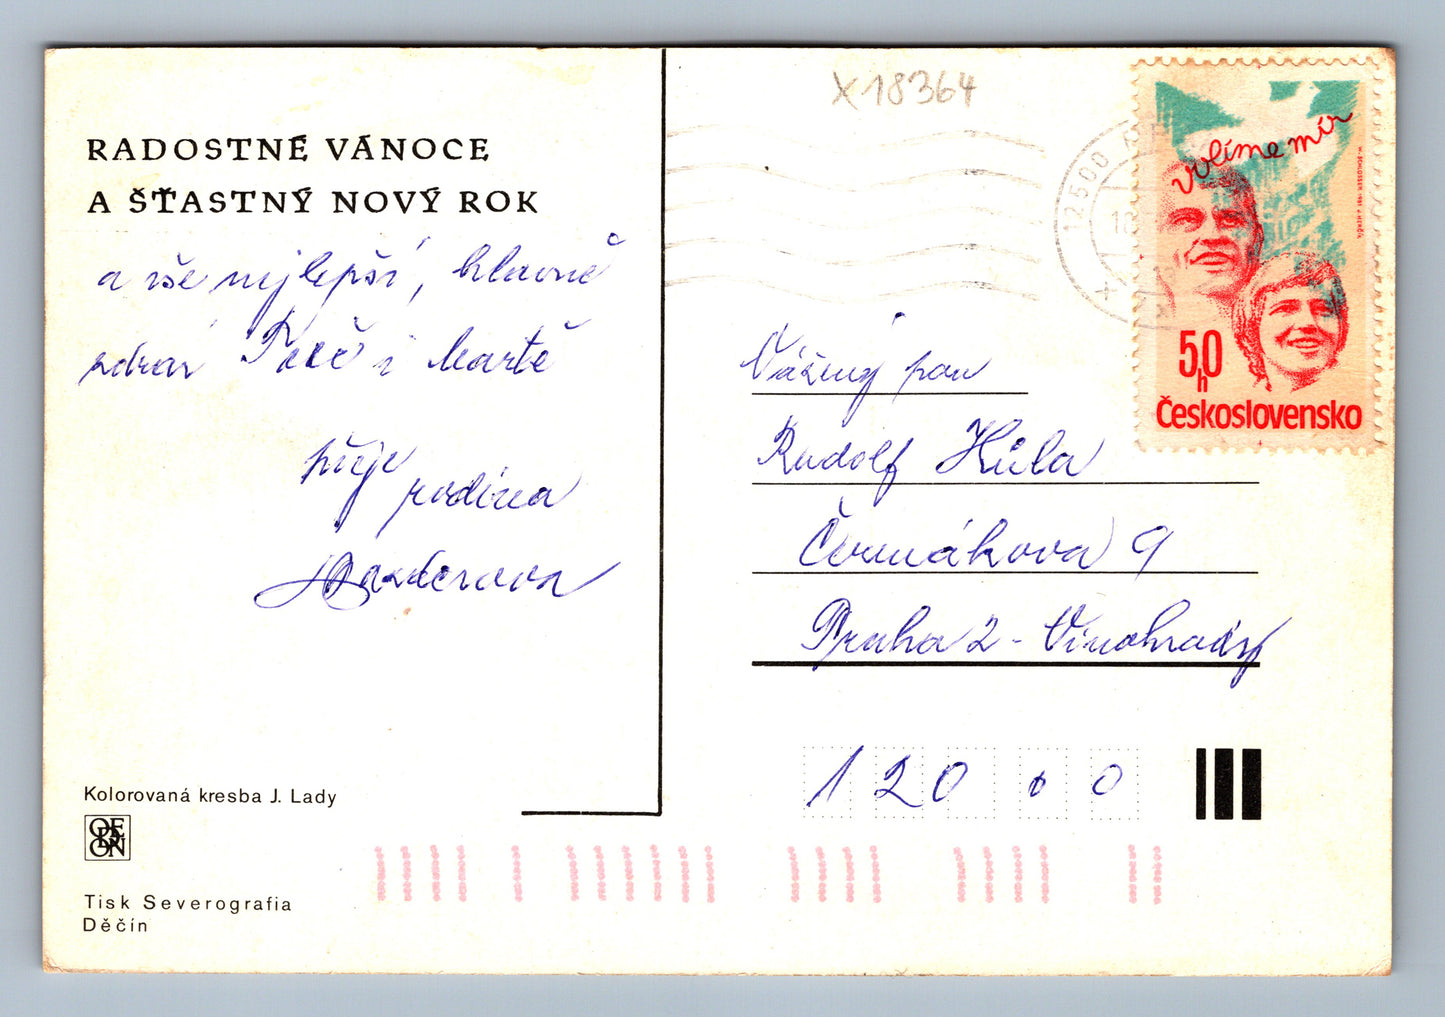 RADOSTNÉ VÁNOCE
A ŠŤASTNÝ NOVÝ ROK
a vše nejlepší, hlavně
zdraví i Martě
přeje
rodina
X 18364
12500
18
volíme mír
50
h
Československo
Vážený pan
Rudolf Hůla
Čermákova 9
Praha 2 - Vinohrady
120 00
Kolorovaná kresba J. Lady
ODEON
Tisk Severografia
Děčín